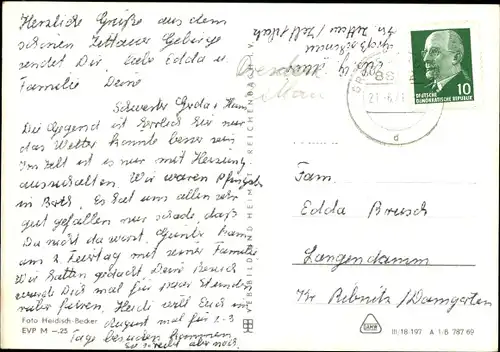 Herzliche Grüße aus dem
schönen Zittauer Gebirge
sendet Dir liebe Edda u.
Familie Deine
Schwester Gerda + Hans
Die Gegend ist herrlich hier nur
das Wetter könnte besser sein
Im Zelt ist es nur mit Heizung
auszuhalten. Wir waren Pfingsten
in Berlin. Es hat uns allen sehr
gut gefallen nur schade, daß
Du nicht da warst. Günter kam
am 2. Feiertag mit seiner Familie
Wir hatten gedacht Dein Besuch
würde Dich mal für paar Stunden
rüber fahren. Heidi will Euch im
August mal für 2-3
Tage besuchen kommen
Foto Heidisch-Becker
EVP M -.23
VEB BILD UND HEIMAT REICHENBACH I. V.
10
DEUTSCHE
DEMOKRATISCHE REPUBLIK
d
Fam.
Edda Brusch
Langendamm
Kr. Ribnitz/Damgarten
III/18 197 A 1-B 787 69